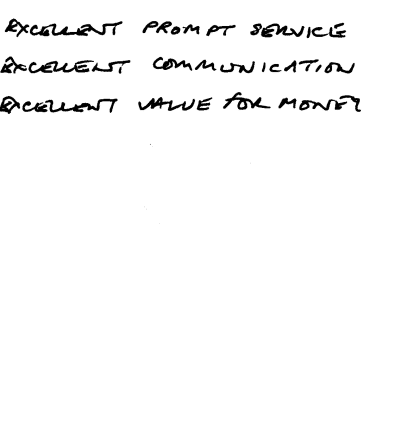 EXCELLENT PROMPT SERVICE
EXCELLENT COMMUNICATION
EXCELLENT VALUE FOR MONEY